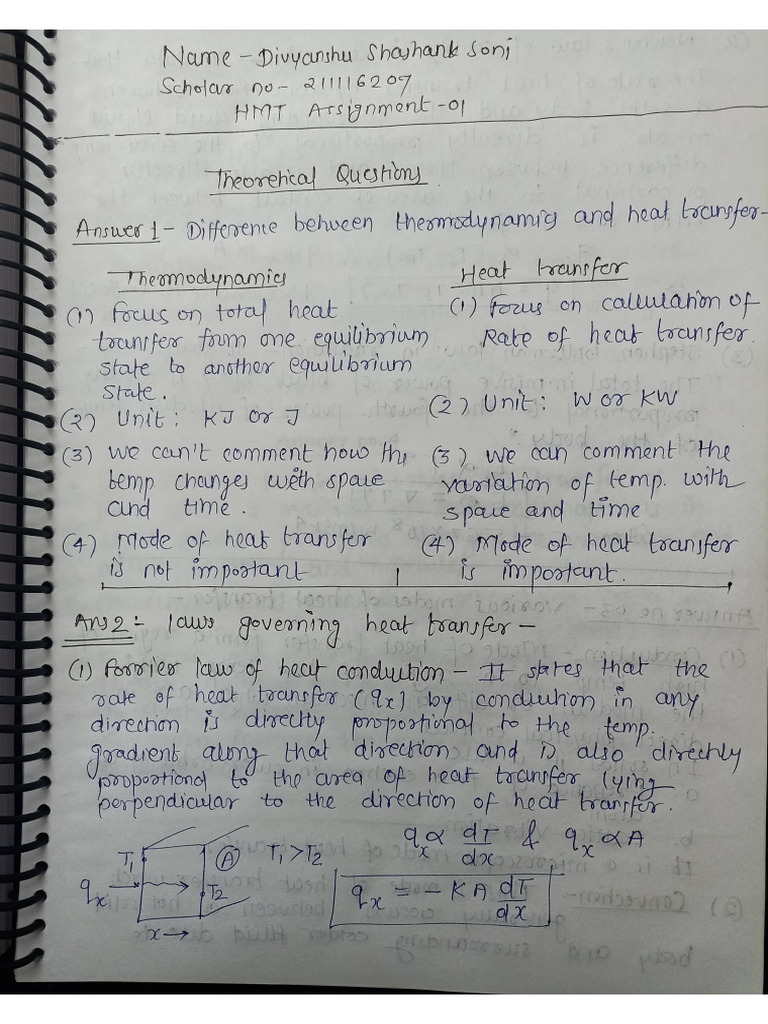 Name - Divyanshu Shashank Soni
Scholar no - 211116207
HMT Assignment -01
Theoretical Questions
Answer 1 - Difference between thermodynamics and heat transfer-
Thermodynamics
(1) Focus on total heat
transfer from one equilibrium
state to another equilibrium
state.
(2) Unit : KJ or J
(3) we can't comment how the
temp changes with space
and time.
(4) Mode of heat transfer
is not important
Heat transfer
(1) Focus on calculation of
Rate of heat transfer.
(2) Unit : W or KW
(3) we can comment the
variation of temp. with
space and time
(4) Mode of heat transfer
is important.
Ans 2 :- laws governing heat transfer -
(1) Forrier law of heat conduction - It states that the
rate of heat transfer (qx) by conduction in any
direction is directly proportional to the temp.
gradient along that direction and is also directly
proportional to the area of heat transfer lying
perpendicular to the direction of heat transfer.
qx ∝ dT/dx & qx ∝ A
T1 A T1 > T2
qx T2
x →
qx = - KA dT/dx